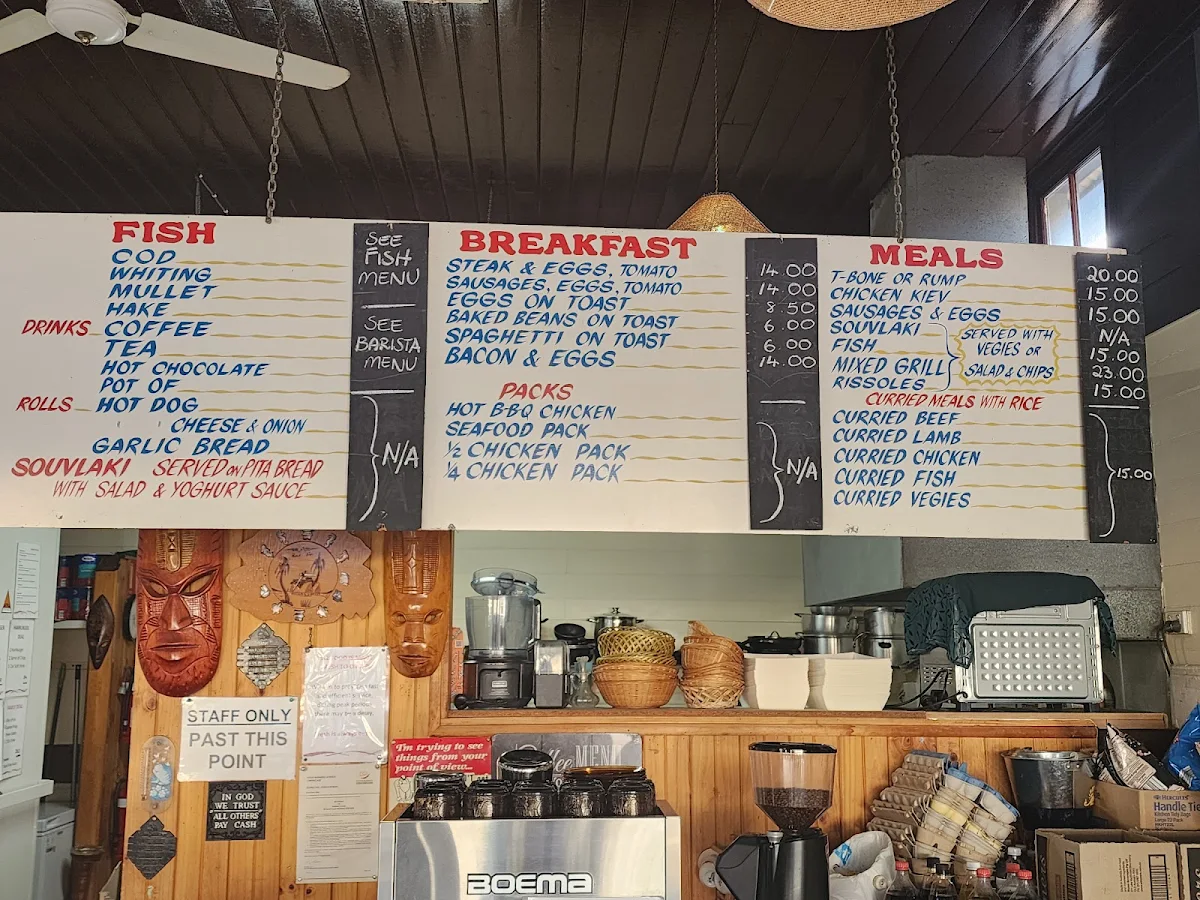 FISH
COD
WHITING
MULLET
HAKE
DRINKS COFFEE
TEA
HOT CHOCOLATE
POT OF
ROLLS HOT DOG
CHEESE & ONION
GARLIC BREAD
SOUVLAKI SERVED ON PITA BREAD
WITH SALAD & YOGHURT SAUCE
SEE
FISH
MENU
SEE
BARISTA
MENU
N/A
BREAKFAST
STEAK & EGGS, TOMATO 14.00
SAUSAGES, EGGS, TOMATO 14.00
EGGS ON TOAST 8.50
BAKED BEANS ON TOAST 6.00
SPAGHETTI ON TOAST 6.00
BACON & EGGS 14.00
PACKS
HOT B-B-Q CHICKEN
SEAFOOD PACK
½ CHICKEN PACK
¼ CHICKEN PACK
N/A
MEALS
T-BONE OR RUMP 20.00
CHICKEN KIEV 15.00
SAUSAGES & EGGS 15.00
SOUVLAKI N/A
FISH 15.00
MIXED GRILL 23.00
RISSOLES 15.00
SERVED WITH
VEGIES OR
SALAD & CHIPS
CURRIED MEALS WITH RICE
CURRIED BEEF
CURRIED LAMB
CURRIED CHICKEN
CURRIED FISH
CURRIED VEGIES
15.00
STAFF ONLY
PAST THIS
POINT
IN GOD
WE TRUST
ALL OTHERS
PAY CASH
I'm trying to see
things from your
point of view...
Coffee MENU
BOEMA
Handle Tie